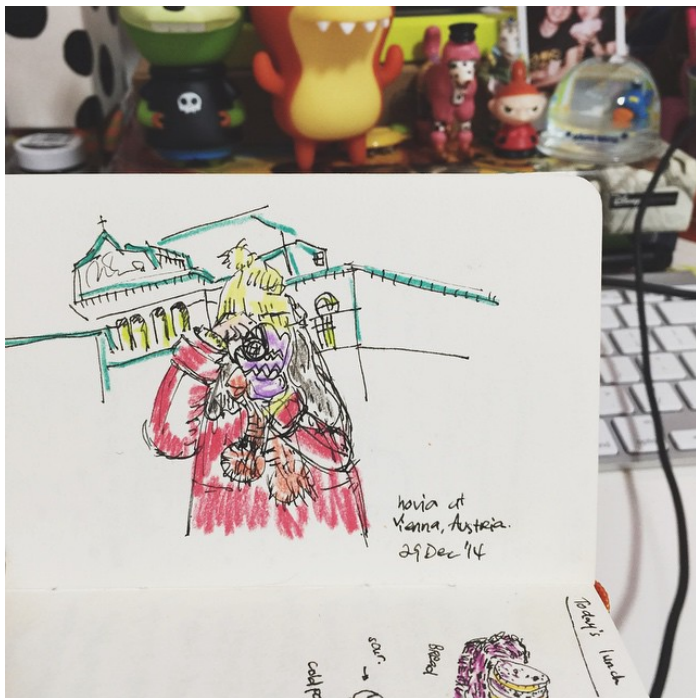 novia at
Vienna, Austria.
29 Dec '14
Today's lunch
Bread
sour.